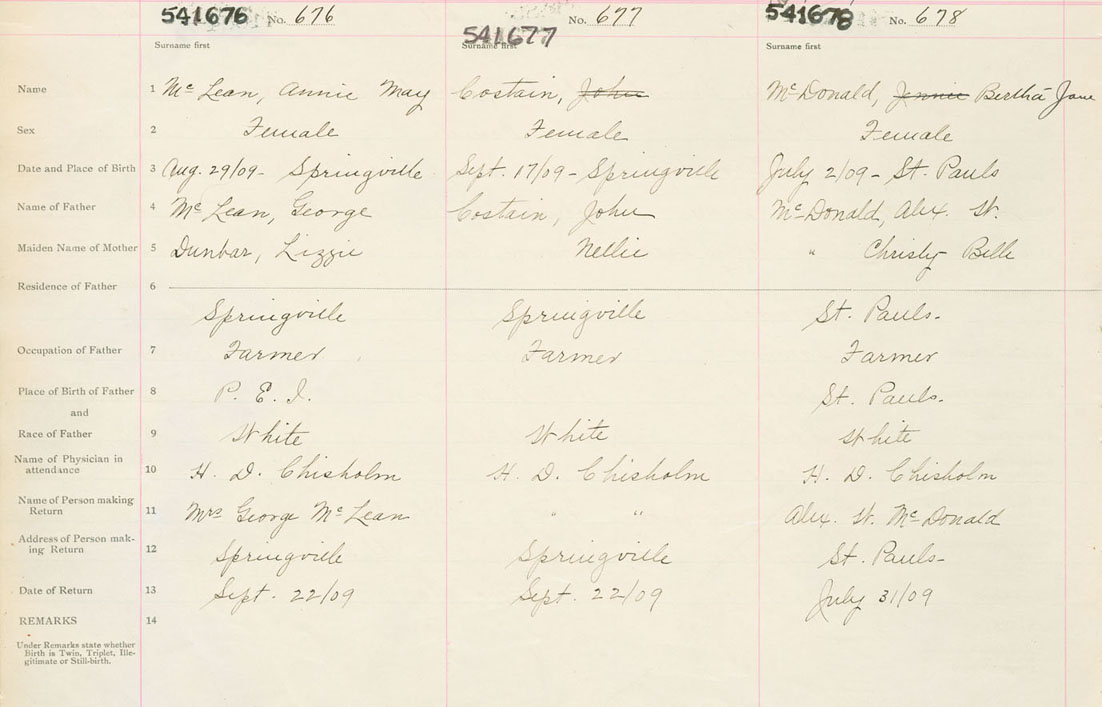 541676 No. 676 No. 677 541678 No. 678
541677
Surname first Surname first Surname first
Name 1 Mc Lean, Annie May Costain, John McDonald, Jennie Bertha Jane
Sex 2 Female Female Female
Date and Place of Birth 3 Aug. 29/09- Springville Sept. 17/09- Springville July 2/09- St. Pauls
Name of Father 4 Mc Lean, George Costain, John McDonald, Alex. W.
Maiden Name of Mother 5 Dunbar, Lizzie Nellie " Christy Belle
Residence of Father 6
Springville Springville St. Pauls.
Occupation of Father 7 Farmer Farmer Farmer
Place of Birth of Father 8 P. E. I. St. Pauls.
and
Race of Father 9 White White White
Name of Physician in
attendance 10 H. D. Chisholm H. D. Chisholm H. D. Chisholm
Name of Person making
Return 11 Mrs George McLean " " Alex. W. McDonald
Address of Person mak-
ing Return 12 Springville Springville St. Pauls-
Date of Return 13 Sept. 22/09 Sept. 22/09 July 31/09
REMARKS 14
Under Remarks state whether
Birth is Twin, Triplet, Ille-
gitimate or Still-birth.